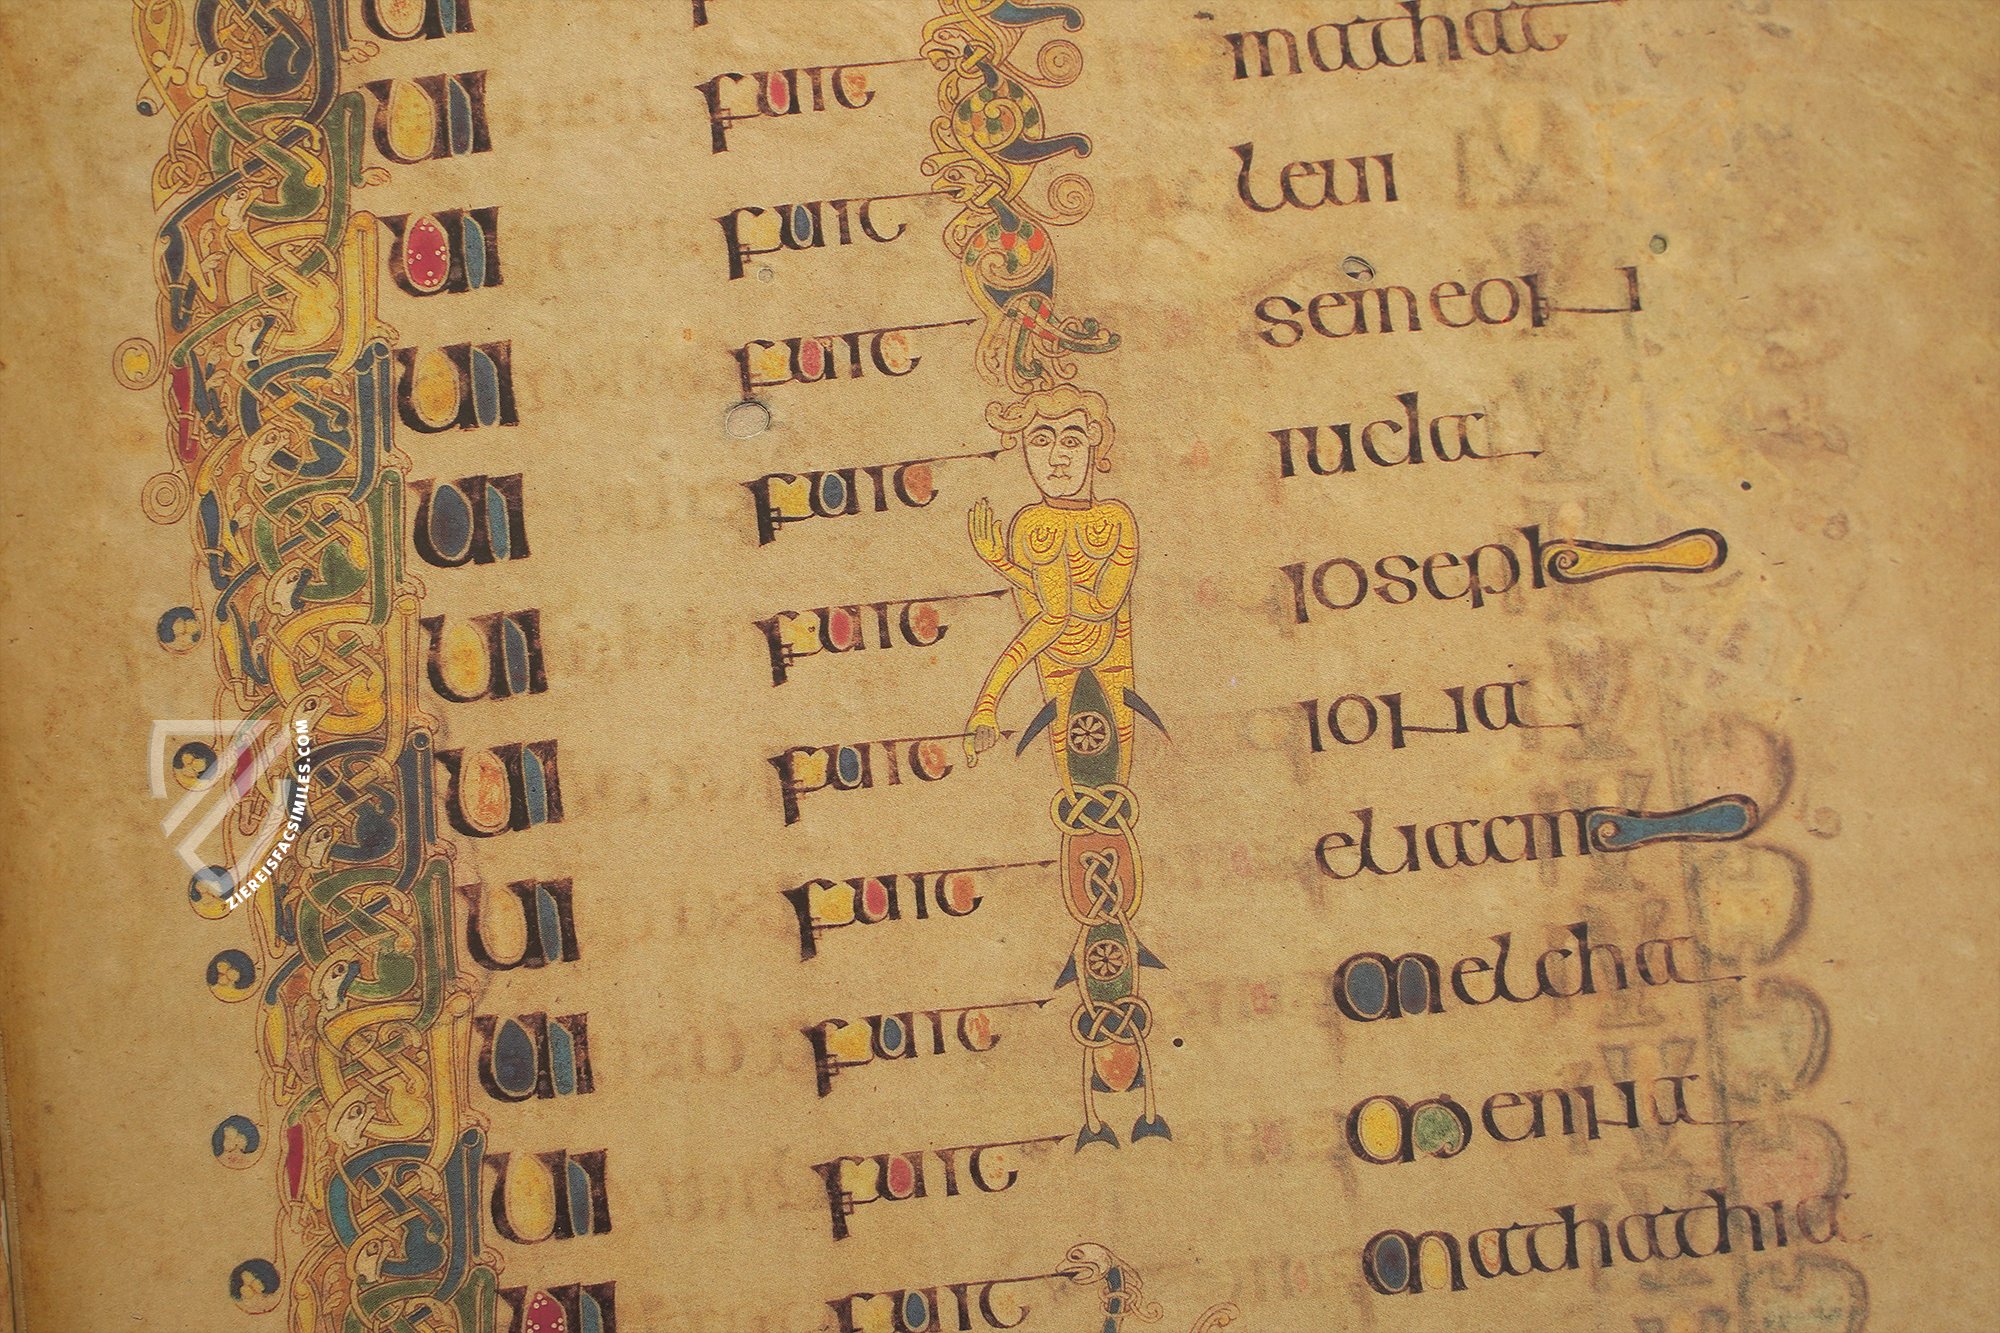 ui
ui fuit mathat
ui fuit leui
ui fuit semeon
ui fuit iuda
ui fuit ioseph
ui fuit iona
ui fuit eliacim
ui fuit melcha
ui fuit menna
ui fuit mathathia
ZIEREISFACSIMILES.COM